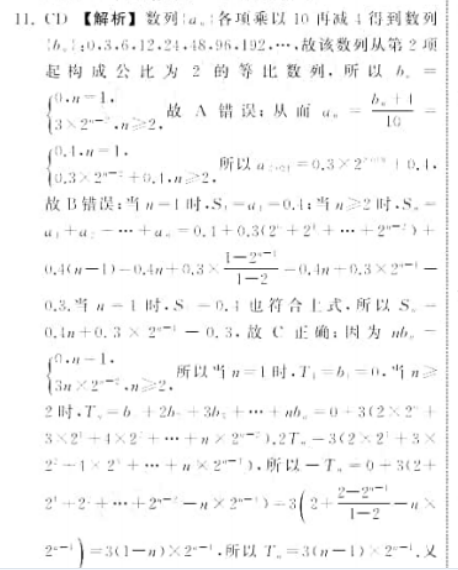 11. CD 【解析】数列{aₙ}各项乘以 10 再减 4 得到数列
{bₙ}:0,3,6,12,24,48,96,192,…,故该数列从第 2 项
起构成公比为 2 的等比数列,所以 bₙ =
{0,n=1, 3×2ⁿ⁻²,n≥2, 故 A 错误;从而 aₙ =
{0.4,n=1, 0.3×2ⁿ⁻²+0.4,n≥2, 所以
故 B 错误;当 n=1 时,S₁=a₁=0.4;当 n≥2 时,Sₙ=
a₁+a₂+…+aₙ=0.4+0.3(2⁰+2¹+…+2ⁿ⁻²)+
0.4(n-1)=0.4n+0.3×(1-2ⁿ⁻¹)/(1-2)=0.4n+0.3×2ⁿ⁻¹-
0.3,当 n=1 时,S₁=0.4 也符合上式,所以 Sₙ=
0.4n+0.3×2ⁿ⁻¹-0.3,故 C 正确;因为 nbₙ=
{0,n=1, 3n×2ⁿ⁻²,n≥2, 所以当 n=1 时,T₁=b₁=0,当 n≥
2 时,Tₙ=b₁+2b₂+3b₃+…+nbₙ=0+3(2×2⁰+
3×2¹+4×2²+…+n×2ⁿ⁻²),2Tₙ=3(2×2¹+3×
2²+4×2³+…+n×2ⁿ⁻¹),所以-Tₙ=0+3(2+
2¹+2²+…+2ⁿ⁻²-n×2ⁿ⁻¹)=3(2+(2-2ⁿ⁻¹)/(1-2)-n×
2ⁿ⁻¹)=3(1-n)×2ⁿ⁻¹,所以 Tₙ=3(n-1)×2ⁿ⁻¹,又